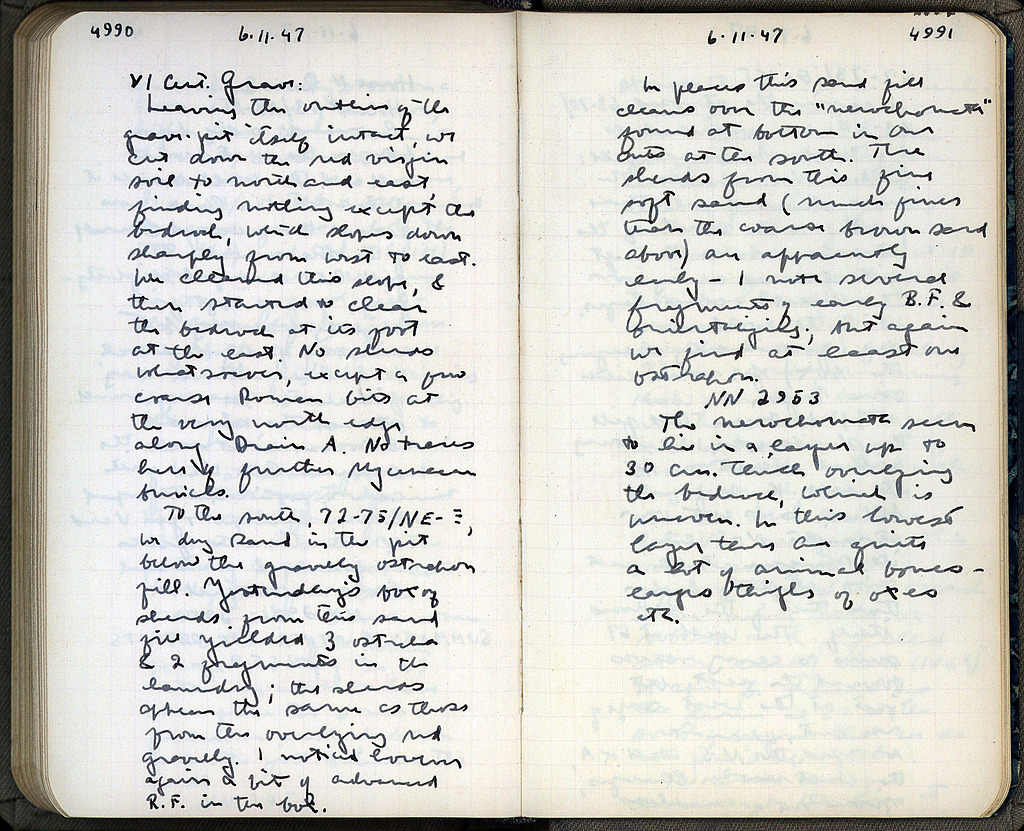 4990
6.11.47
VI Cent. Grave.
Leaving the outlines of the
grave-pit itself intact we
cut down the red virgin
soil to north and east,
finding nothing except the
bedrock, which slopes down
sharply from west to east.
We cleaned this slope, &
then started to clear
the bedrock at its foot
at the east. No sherds
whatsoever, except a few
coarse Roman bits at
the very north edge
along Drain A. No traces
here of further Mycenean
burials.
To the south, 72-75/ΝΕ-
we dug sand in the pit
below the gravelly ostrakon
fill. Yesterday's box of
sherds from this sand
fill yielded 3 ostraka
& 2 fragments in the
laundry; the sherds
appear the same as those
from the overlying red
gravelly. I noticed however
again a bit of advanced
R.F. in the box.
6.11.47
4991
In places this sand fill
cleans over the "nerochomata"
found at bottom in our
cuts at the south. The
sherds from this fine
soft sand (much finer
than the coarse brown sand
above) are apparently
early - I note several
fragments of early B.F. &
orientalizing; but again
we find at least one
ostrakon.
NN 2953
The nerochomata seem
to lie in a layer up to
30 cm. thick overlying
the bedrock, which is
uneven. In this lowest
layer there are quite
a lot of animal bones -
large thighs of oxes
etc.